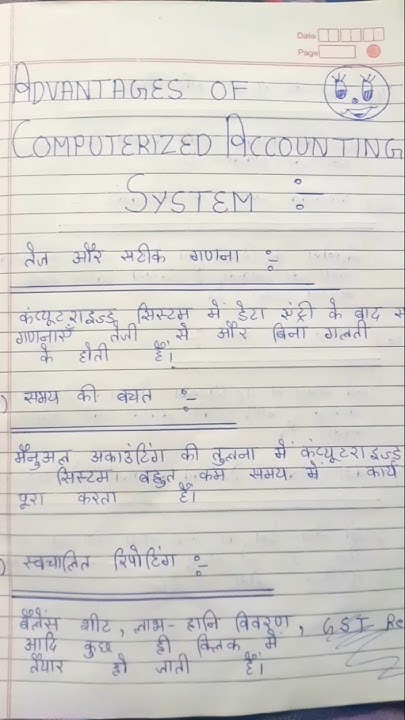 Date
Page
ADVANTAGES OF
COMPUTERIZED ACCOUNTING
SYSTEM :-
तेज और सटीक गणना :-
कंप्यूटराइज्ड सिस्टम में डेटा एंट्री के बाद स
गणनाएँ तेजी से और बिना गलती
के होती हैं।
) समय की बचत :-
मैनुअल अकाउंटिंग की तुलना में कंप्यूटराइज्ड
सिस्टम बहुत कम समय में कार्य
पूरा करता है।
) स्वचालित रिपोटिंग :-
बैलेंस शीट, लाभ-हानि विवरण, GST Re
आदि कुछ ही क्लिक में
तैयार हो जाती है।